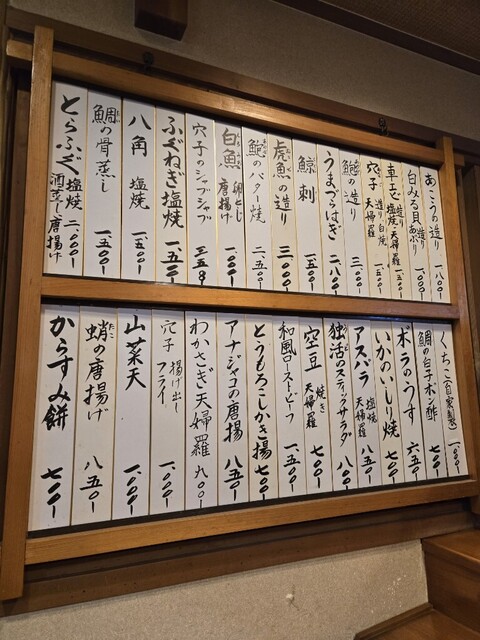 あこうの造り 一、八〇〇-
白みる貝 造り あぶり 一、〇〇〇-
車えび 造り 塩焼 天婦羅 一、五〇〇-
穴子 造り・白焼 天婦羅 一、五〇〇-
鮑の造り 三、〇〇〇-
うまづらはぎ 二、八〇〇-
鯨刺 一、五〇〇-
虎魚の造り 三、〇〇〇-
鮑のバター焼 二、五〇〇-
白魚 卵とじ 唐揚げ 一、〇〇〇-
穴子のシャブシャブ
ふぐねぎ塩焼 一、五〇〇-
八角 塩焼 一、五〇〇-
鯛の骨蒸し 一、五〇〇-
とらふぐ 塩焼 二、〇〇〇- 酒蒸し 唐揚げ
くちこ(自家製) 一、〇〇〇-
鯛の白子ポン酢
ボラのうす 六五〇-
いかのいしり焼 七〇〇-
アスパラ 塩焼 天婦羅 八五〇-
独活のスティックサラダ 八〇〇-
空豆 焼き 天婦羅 七〇〇-
和風ローストビーフ 一、五〇〇-
とうもろこしかき揚 七〇〇-
アナジャコの唐揚 八五〇-
わかさぎ天婦羅 九〇〇-
穴子 揚げ出し フライ 一、〇〇〇-
山菜天 一、〇〇〇-
蛸の唐揚げ 八五〇-
からすみ餅 七〇〇-